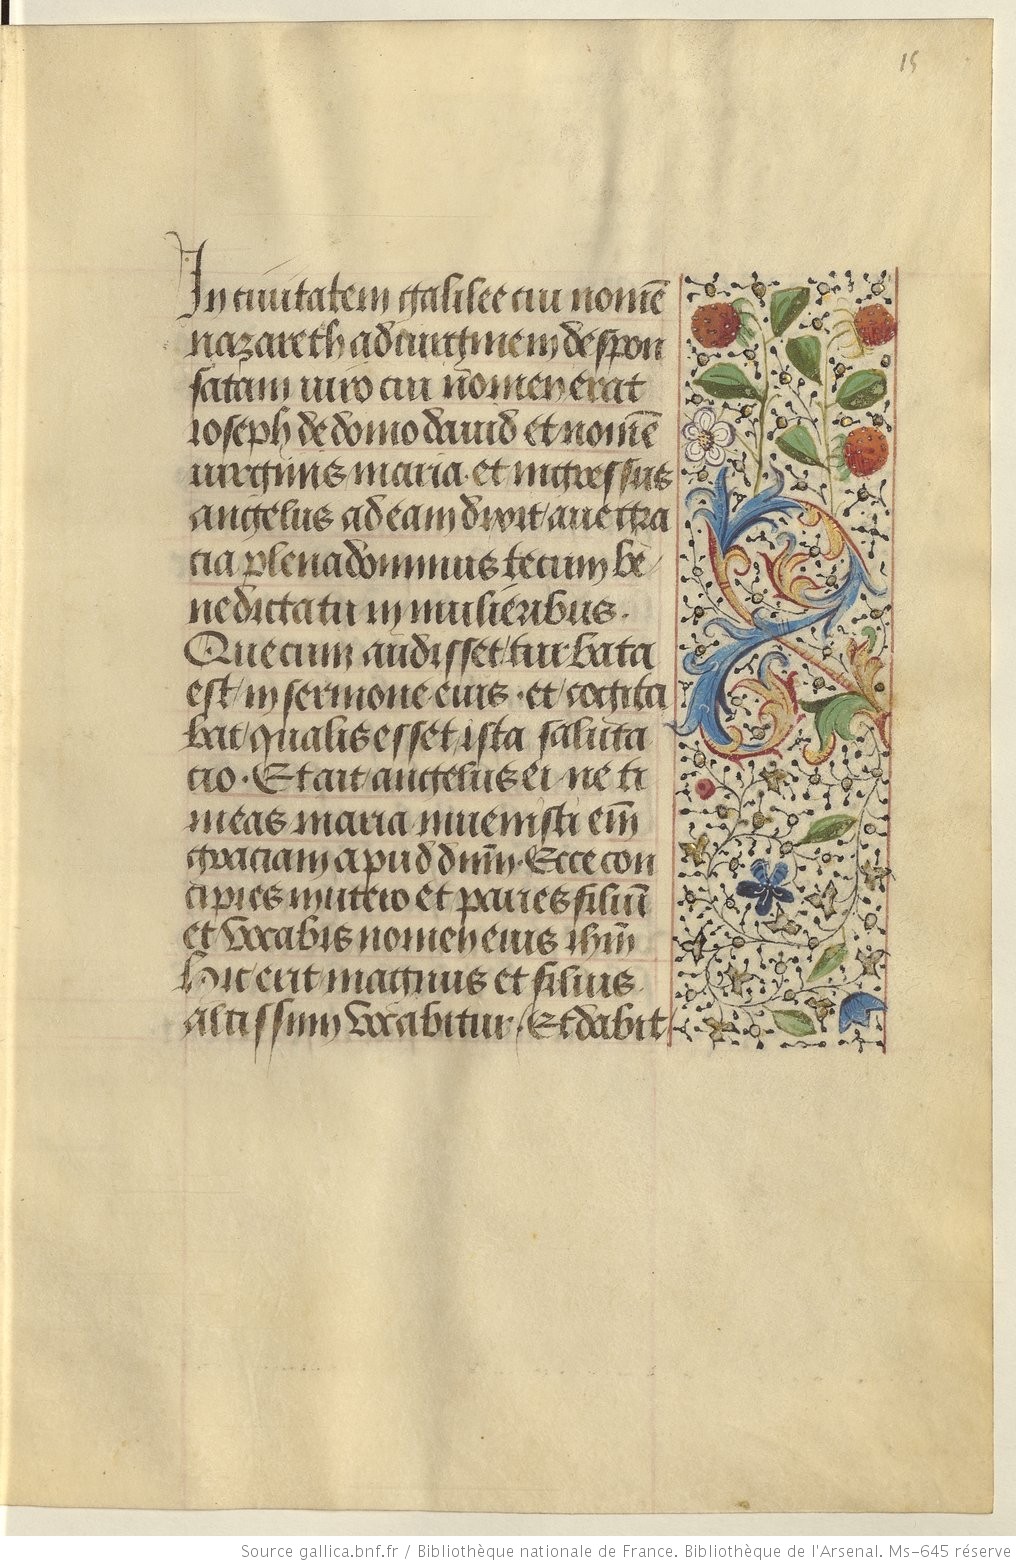 15
In ciuitatem galilee cui nomē
nazareth ad uirginem despon
satam uiro cui nomen erat
ioseph de domo dauid et nomē
uirginis maria. et ingressus
angelus ad eam dixit/aue gra
cia plena dominus tecum be/
nedicta tu in mulieribus.
Que cum audisset/turbata
est/in sermone eius. et/cogita
bat/qualis esset/ista saluta
cio. Et ait angelus ei/ne ti
meas maria inuenisti em̄
graciam apud dn̄m. Ecce con
cipies in utero et paries filiū
et vocabis nomen eius ihm̄
Hic erit magnus et filius
altissimi vocabitur/Et dabit/
Source gallica.bnf.fr / Bibliothèque nationale de France. Bibliothèque de l'Arsenal. Ms-645 réserve